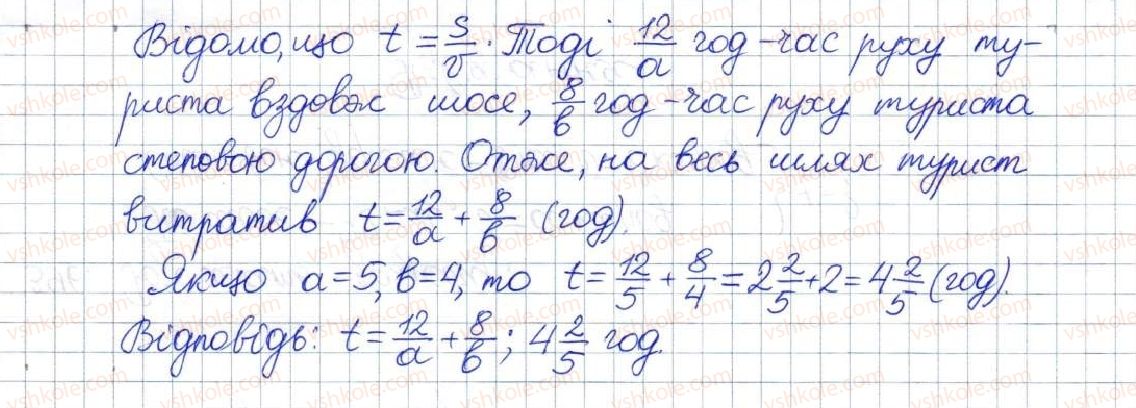 Відомо, що t = s/v. Тоді 12/a год - час руху ту-
риста вздовж шосе, 8/b год - час руху туриста
степовою дорогою. Отже, на весь шлях турист
витратив t = 12/a + 8/b (год).
Якщо a = 5, b = 4, то t = 12/5 + 8/4 = 2 2/5 + 2 = 4 2/5 (год).
Відповідь: t = 12/a + 8/b; 4 2/5 год.